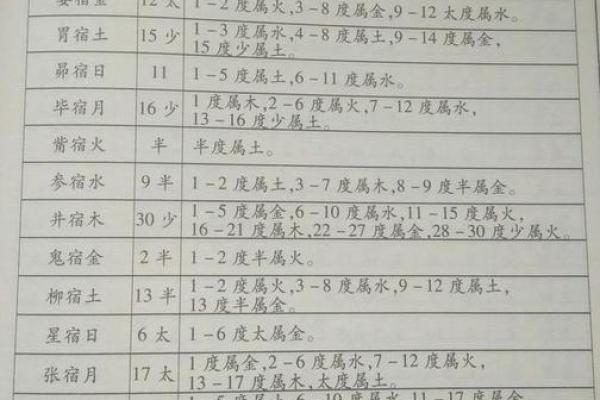 娄宿金 12 太 1-2度属火,3-8度属金,9-12太度属水。
胃宿土 15 少 1-3度属水,4-8度属土,9-14度属金,
15度少属土。
昴宿日 11 1-5度属土,6-11度属水。
毕宿月 16 少 1度属木,2-6度属火,7-12度属水,
13-16度少属土。
觜宿火 半 半度属土。
参宿水 9半 1-2度属土,3-7度属木,8-9度半属金。
井宿木 30 少 1-5度属金,6-10度属水,11-15度属火,
16-21度属木,22-27度属金,28-30度少属火。
鬼宿金 2半 1-2度半属火。
柳宿土 13半 1-2度属火,3-8度属水,9-12度属土,
13度半属金。
星宿日 6太 1-6度太属金。
张宿月 17太 1度属金,2-6度属水,7-12度属火,
13-17度属木,太度属土。
1-5度属土,6-10度属水,11-17度属金